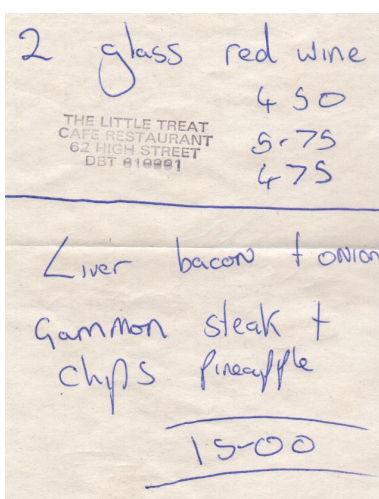 2 glass red wine
4 50
THE LITTLE TREAT
CAFE RESTAURANT
62 HIGH STREET
DBT 819991
5-75
475
Liver bacon + onion
Gammon steak +
chips pineapple
15-00